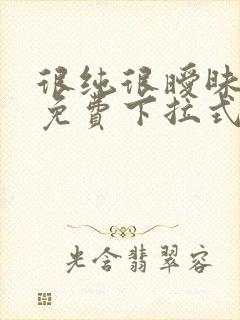 很纯很暧昧
免费下拉式
光含翡翠容